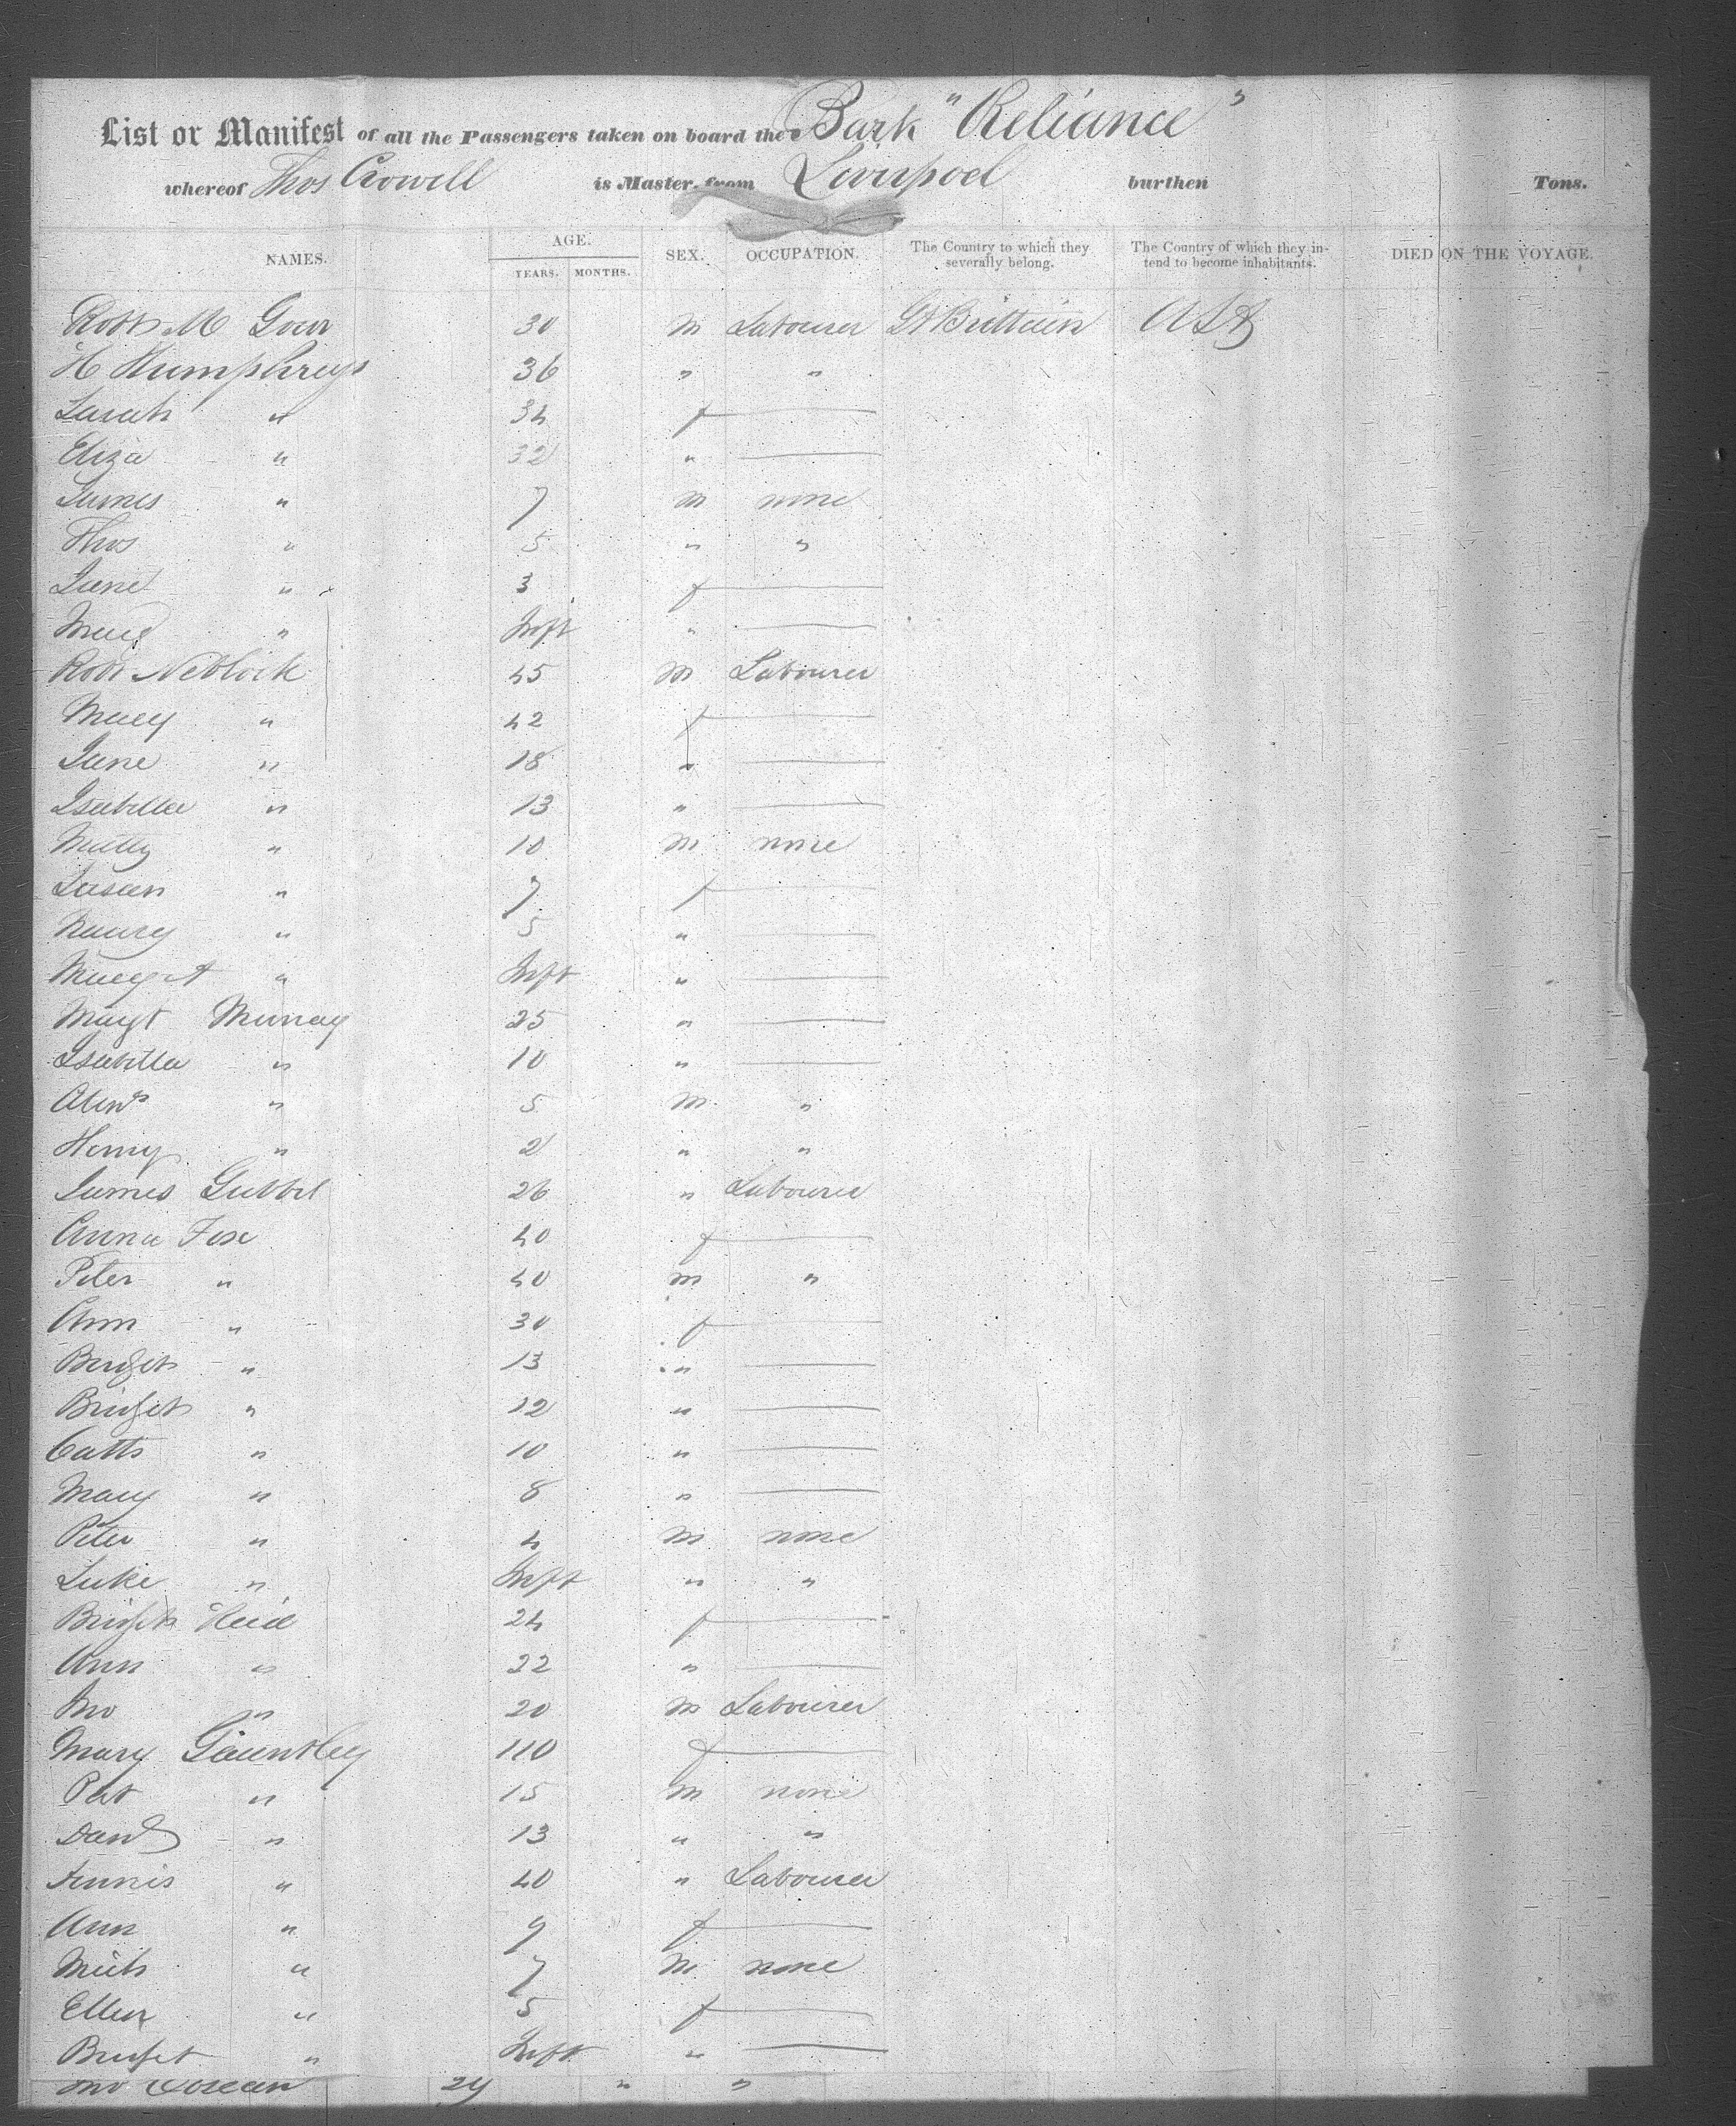 List or Manifest of all the Passengers taken on board the Bark "Reliance"
whereof Thos Crowell is Master, from Liverpool burthen Tons.
NAMES. AGE. YEARS. MONTHS. SEX. OCCUPATION. The Country to which they severally belong. The Country of which they intend to become inhabitants. DIED ON THE VOYAGE.
Robt M 30 m Labourer Gt Brittain
H Humphreys 36 " "
Sarah " 34 f
Eliza " 32 "
James " 7 m none
Thos " 5 " "
Jane " 3 f
Mary " Inft "
Robt Neblock 45 m Labourer
Mary " 42 f
Jane " 18 "
Isabella " 13 "
" 10 m none
Susan " 7 f
Nancy " 5 "
Margt " Inft "
Margt Murray 25 "
Isabella " 10 "
Alexr " 5 m "
Henry " 2 " "
James 26 " Labourer
Anna Fox 40 f
Peter " 40 m "
Ann " 30 f
Bridget " 13 "
Bridget " 12 "
Cath " 10 "
Mary " 8 "
Peter " 4 m none
Luke " Inft " "
Bridget Reid 24 f
Ann " 22 "
Jno " 20 m Labourer
Mary Gauntley 110 f
Pat " 15 m none
Danl " 13 " "
Dennis " 40 " Labourer
Ann " 9 f
Mich " 7 m none
Ellen " 5 f
Bridget " Inft "
Jno 24 " "